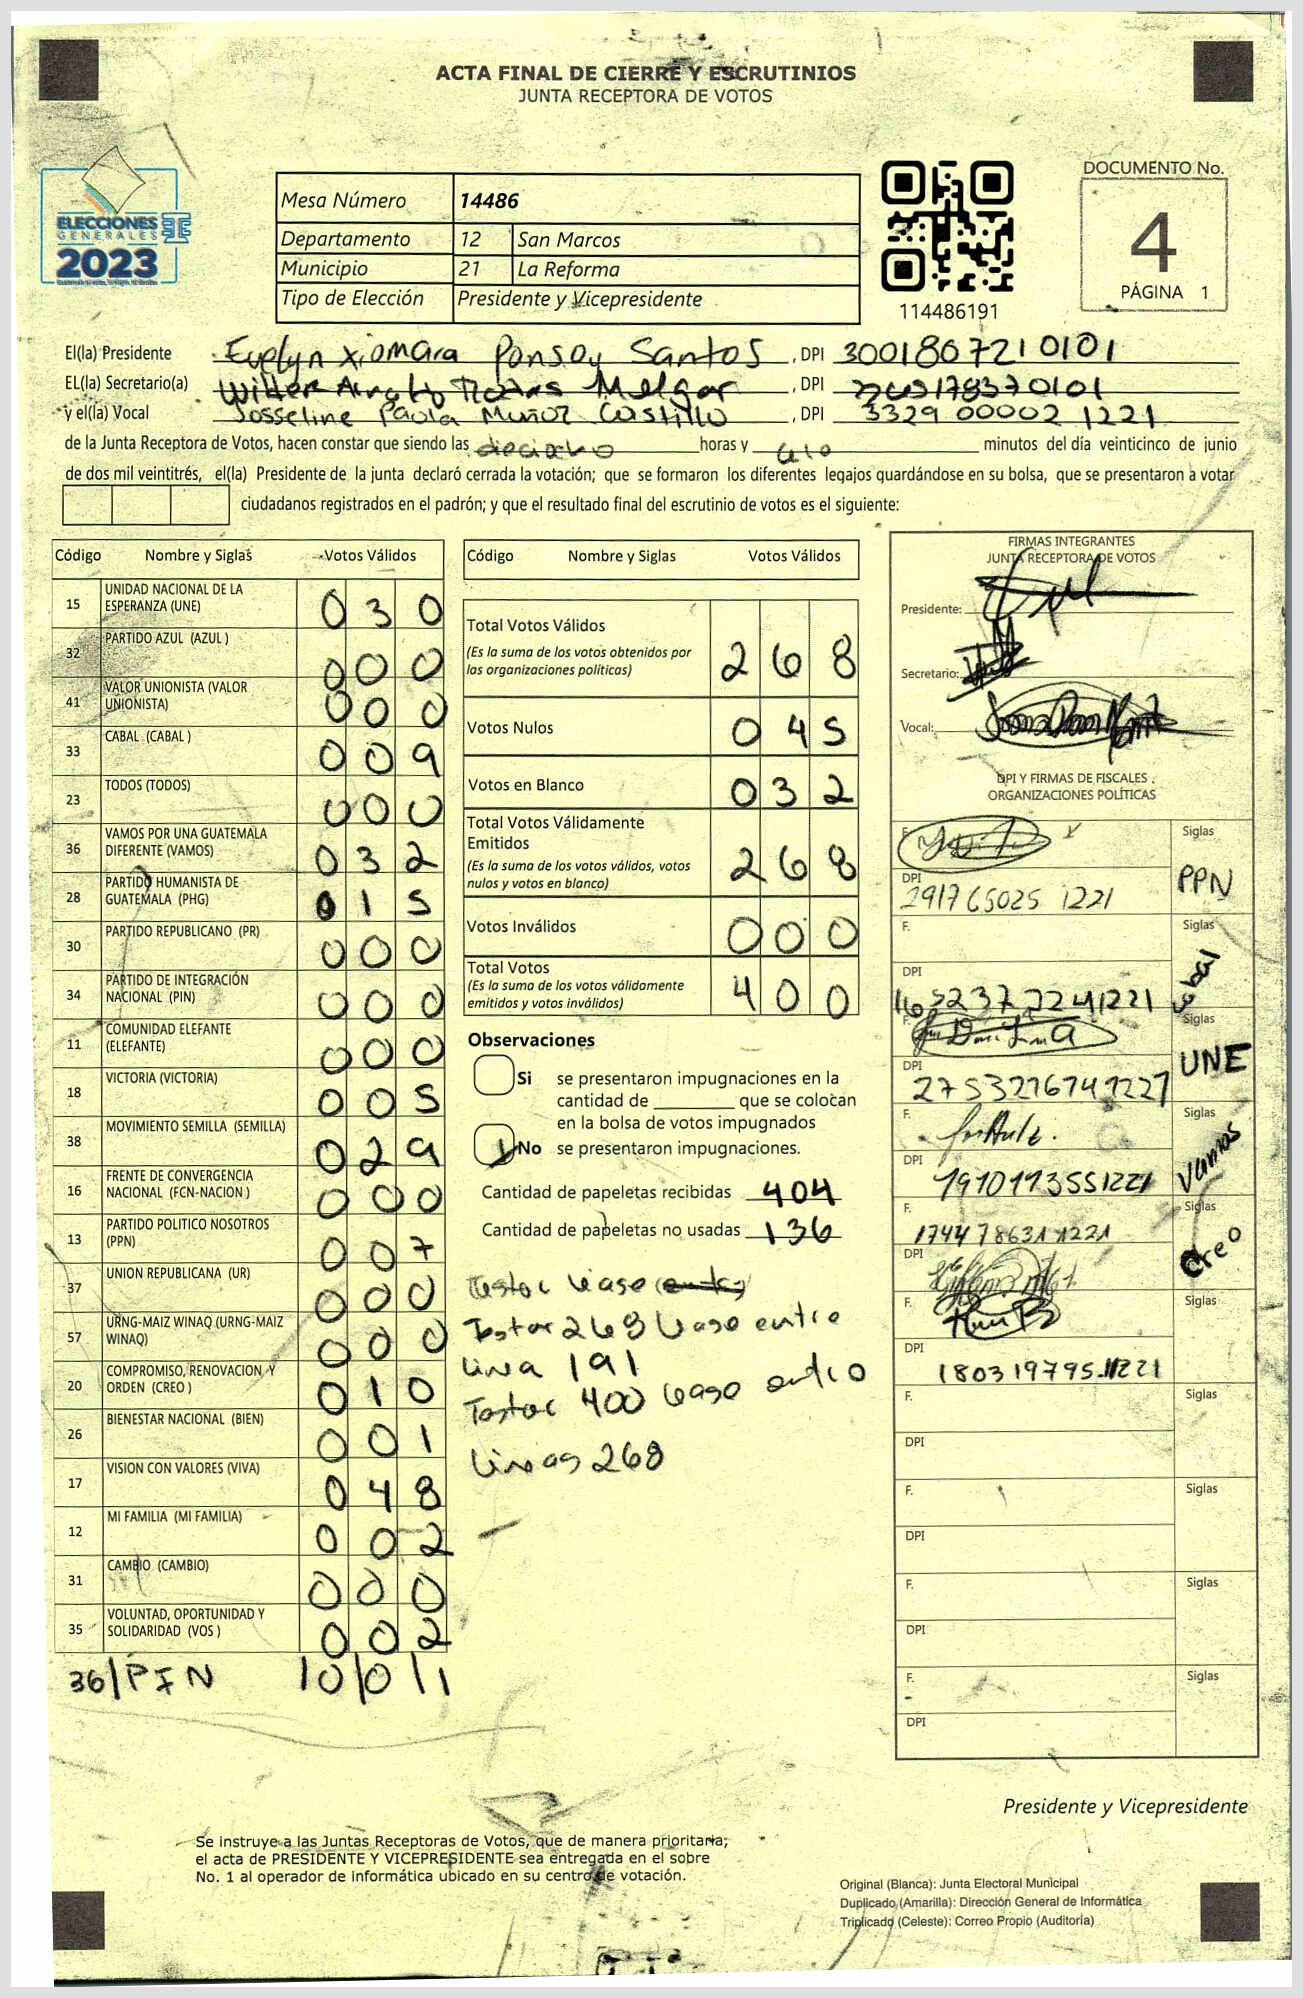 ACTA FINAL DE CIERRE Y ESCRUTINIOS
JUNTA RECEPTORA DE VOTOS
DOCUMENTO No.
4
PÁGINA 1
ELECCIONES
GENERALES
2023
Mesa Número 14486
Departamento 12 San Marcos
Municipio 21 La Reforma
Tipo de Elección Presidente y Vicepresidente
114486191
El(la) Presidente Evelyn Xiomara Ponsoy Santos, DPI 3001867210101
EL(la) Secretario(a) Melgar, DPI
y el(la) Vocal Josseline Paola Muñoz Castillo, DPI 3329 00002 1221
de la Junta Receptora de Votos, hacen constar que siendo las horas y minutos del día veinticinco de junio
de dos mil veintitrés, el(la) Presidente de la junta declaró cerrada la votación; que se formaron los diferentes legajos guardándose en su bolsa, que se presentaron a votar
ciudadanos registrados en el padrón; y que el resultado final del escrutinio de votos es el siguiente:
Código Nombre y Siglas Votos Válidos
15 UNIDAD NACIONAL DE LA ESPERANZA (UNE) 0 3 0
32 PARTIDO AZUL (AZUL ) 0 0 0
41 VALOR UNIONISTA (VALOR UNIONISTA) 0 0 0
33 CABAL (CABAL ) 0 0 9
23 TODOS (TODOS) 0 0 0
36 VAMOS POR UNA GUATEMALA DIFERENTE (VAMOS) 0 3 2
28 PARTIDO HUMANISTA DE GUATEMALA (PHG) 0 1 5
30 PARTIDO REPUBLICANO (PR) 0 0 0
34 PARTIDO DE INTEGRACIÓN NACIONAL (PIN) 0 0 0
11 COMUNIDAD ELEFANTE (ELEFANTE) 0 0 0
18 VICTORIA (VICTORIA) 0 0 5
38 MOVIMIENTO SEMILLA (SEMILLA) 0 2 9
16 FRENTE DE CONVERGENCIA NACIONAL (FCN-NACION ) 0 0 0
13 PARTIDO POLITICO NOSOTROS (PPN) 0 0 7
37 UNION REPUBLICANA (UR) 0 0 0
57 URNG-MAIZ WINAQ (URNG-MAIZ WINAQ) 0 0 0
20 COMPROMISO, RENOVACION Y ORDEN (CREO ) 0 1 0
26 BIENESTAR NACIONAL (BIEN) 0 0 1
17 VISION CON VALORES (VIVA) 0 4 8
12 MI FAMILIA (MI FAMILIA) 0 0 2
31 CAMBIO (CAMBIO) 0 0 0
35 VOLUNTAD, OPORTUNIDAD Y SOLIDARIDAD (VOS ) 0 0 2
36/PIN /0/0/1
Código Nombre y Siglas Votos Válidos
Total Votos Válidos 2 6 8
(Es la suma de los votos obtenidos por
las organizaciones políticas)
Votos Nulos 0 4 5
Votos en Blanco 0 3 2
Total Votos Válidamente
Emitidos 2 6 8
(Es la suma de los votos válidos, votos
nulos y votos en blanco)
Votos Inválidos 0 0 0
Total Votos 4 0 0
(Es la suma de los votos válidamente
emitidos y votos inválidos)
Observaciones
Si se presentaron impugnaciones en la
cantidad de ________ que se colocan
en la bolsa de votos impugnados
No se presentaron impugnaciones.
Cantidad de papeletas recibidas 404
Cantidad de papeletas no usadas 136
Testar lease
Testar 268 lease entre
linea 191
Testar 400 lease entre
lineas 268
FIRMAS INTEGRANTES
JUNTA RECEPTORA DE VOTOS
Presidente:
Secretario:
Vocal:
DPI Y FIRMAS DE FISCALES
ORGANIZACIONES POLÍTICAS
F. Siglas
DPI 2917 65025 1221 PPN
F. Siglas
DPI 1652377241221
F. Siglas
DPI 2753276741221 UNE
F. Siglas
DPI 1910113551221 Vamos
F. Siglas
1744786311221 Creo
DPI
F. Siglas
DPI 180319795 1221
F. Siglas
DPI
F. Siglas
DPI
F. Siglas
DPI
F. Siglas
DPI
Presidente y Vicepresidente
Se instruye a las Juntas Receptoras de Votos, que de manera prioritaria;
el acta de PRESIDENTE Y VICEPRESIDENTE sea entregada en el sobre
No. 1 al operador de informática ubicado en su centro de votación.
Original (Blanca): Junta Electoral Municipal
Duplicado (Amarilla): Dirección General de Informática
Triplicado (Celeste): Correo Propio (Auditoría)